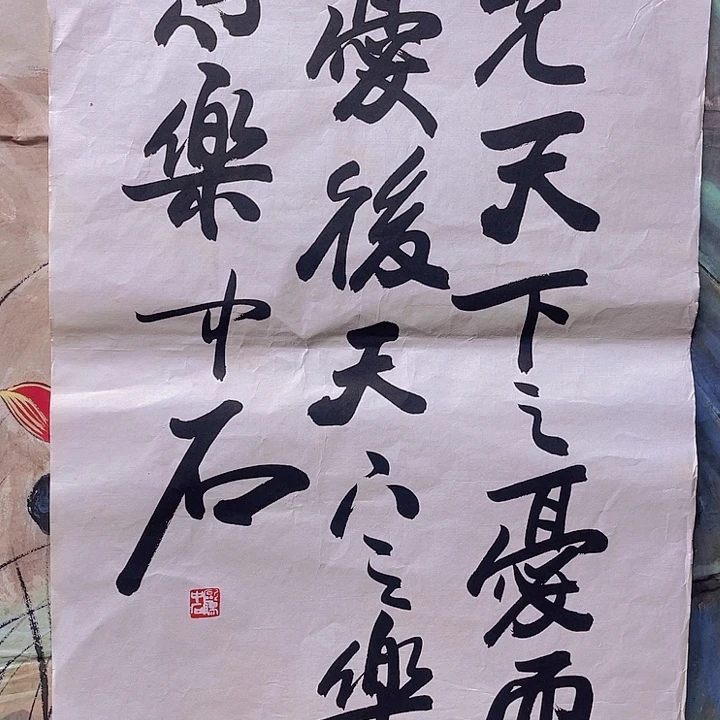 先天下之憂而
憂後天下之樂
而樂中石